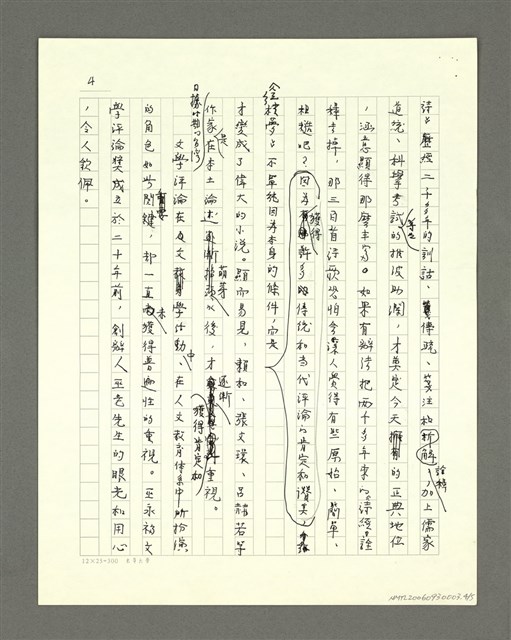 4
詩》歷經二千多年的訓詁、傳疏、箋注和新解詮釋,加上儒家
道統、科擧考試等等的推波助瀾,才奠定今天擁有的正典地位
,涵意顯得那麼丰富。如果有辦法把兩千多年來的讀經詮
釋去掉,那三百首詩歌恐怕令深人覺得有些原始、簡單、
粗糙吧?因為獲得許多的傳統和當代評論的肯定和讚美,
《紅樓夢》不單純因為本身的條件,而是
才變成了偉大的小說。顯而易見,賴和、張文環、呂赫若等
日據時期的台灣作家是在本土論述逐漸萌芽後,才逐漸獲得肯定和重視。
文學評論在文學活動中、在人文教育體系中所扮演
的角色如此重要關鍵,却一直未獲得普遍性的重視。巫永福文
學評論獎成立於二十年前,創辦人巫老先生的眼光和用心
,令人欽佩。
12×25=300
NMTL20060930003 4/5